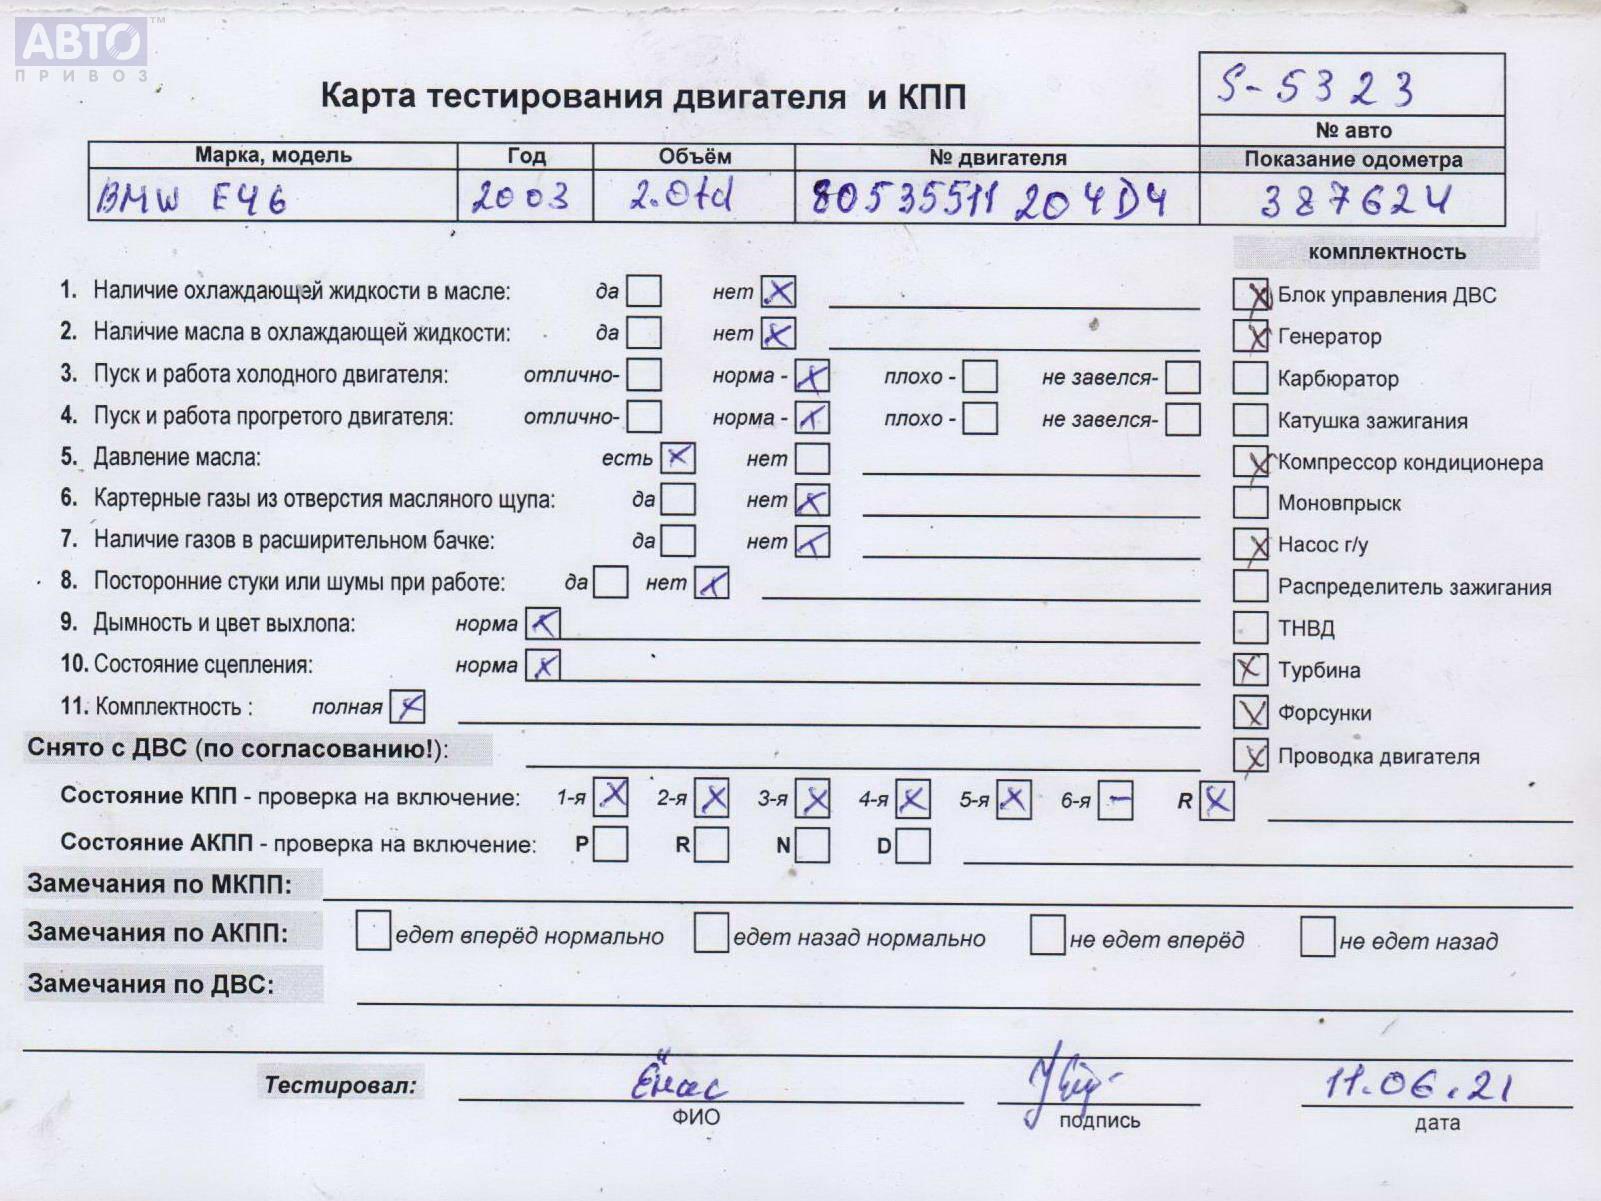 АВТО™
ПРИВОЗ
S-5323
Карта тестирования двигателя и КПП
№ авто
Марка, модель Год Объём № двигателя Показание одометра
BMW E46 2003 2.0td 80535511 204D4 387624
комплектность
1. Наличие охлаждающей жидкости в масле: да нет
Блок управления ДВС
2. Наличие масла в охлаждающей жидкости: да нет
Генератор
3. Пуск и работа холодного двигателя: отлично- норма - плохо - не завелся-
Карбюратор
4. Пуск и работа прогретого двигателя: отлично- норма - плохо - не завелся-
Катушка зажигания
5. Давление масла: есть нет
Компрессор кондиционера
6. Картерные газы из отверстия масляного щупа: да нет
Моновпрыск
7. Наличие газов в расширительном бачке: да нет
Насос г/у
8. Посторонние стуки или шумы при работе: да нет
Распределитель зажигания
9. Дымность и цвет выхлопа: норма
ТНВД
10. Состояние сцепления: норма
Турбина
11. Комплектность : полная
Форсунки
Снято с ДВС (по согласованию!):
Проводка двигателя
Состояние КПП - проверка на включение: 1-я 2-я 3-я 4-я 5-я 6-я – R
Состояние АКПП - проверка на включение: P R N D
Замечания по МКПП:
Замечания по АКПП: едет вперёд нормально едет назад нормально не едет вперёд не едет назад
Замечания по ДВС:
Тестировал: 11.06.21
ФИО подпись дата